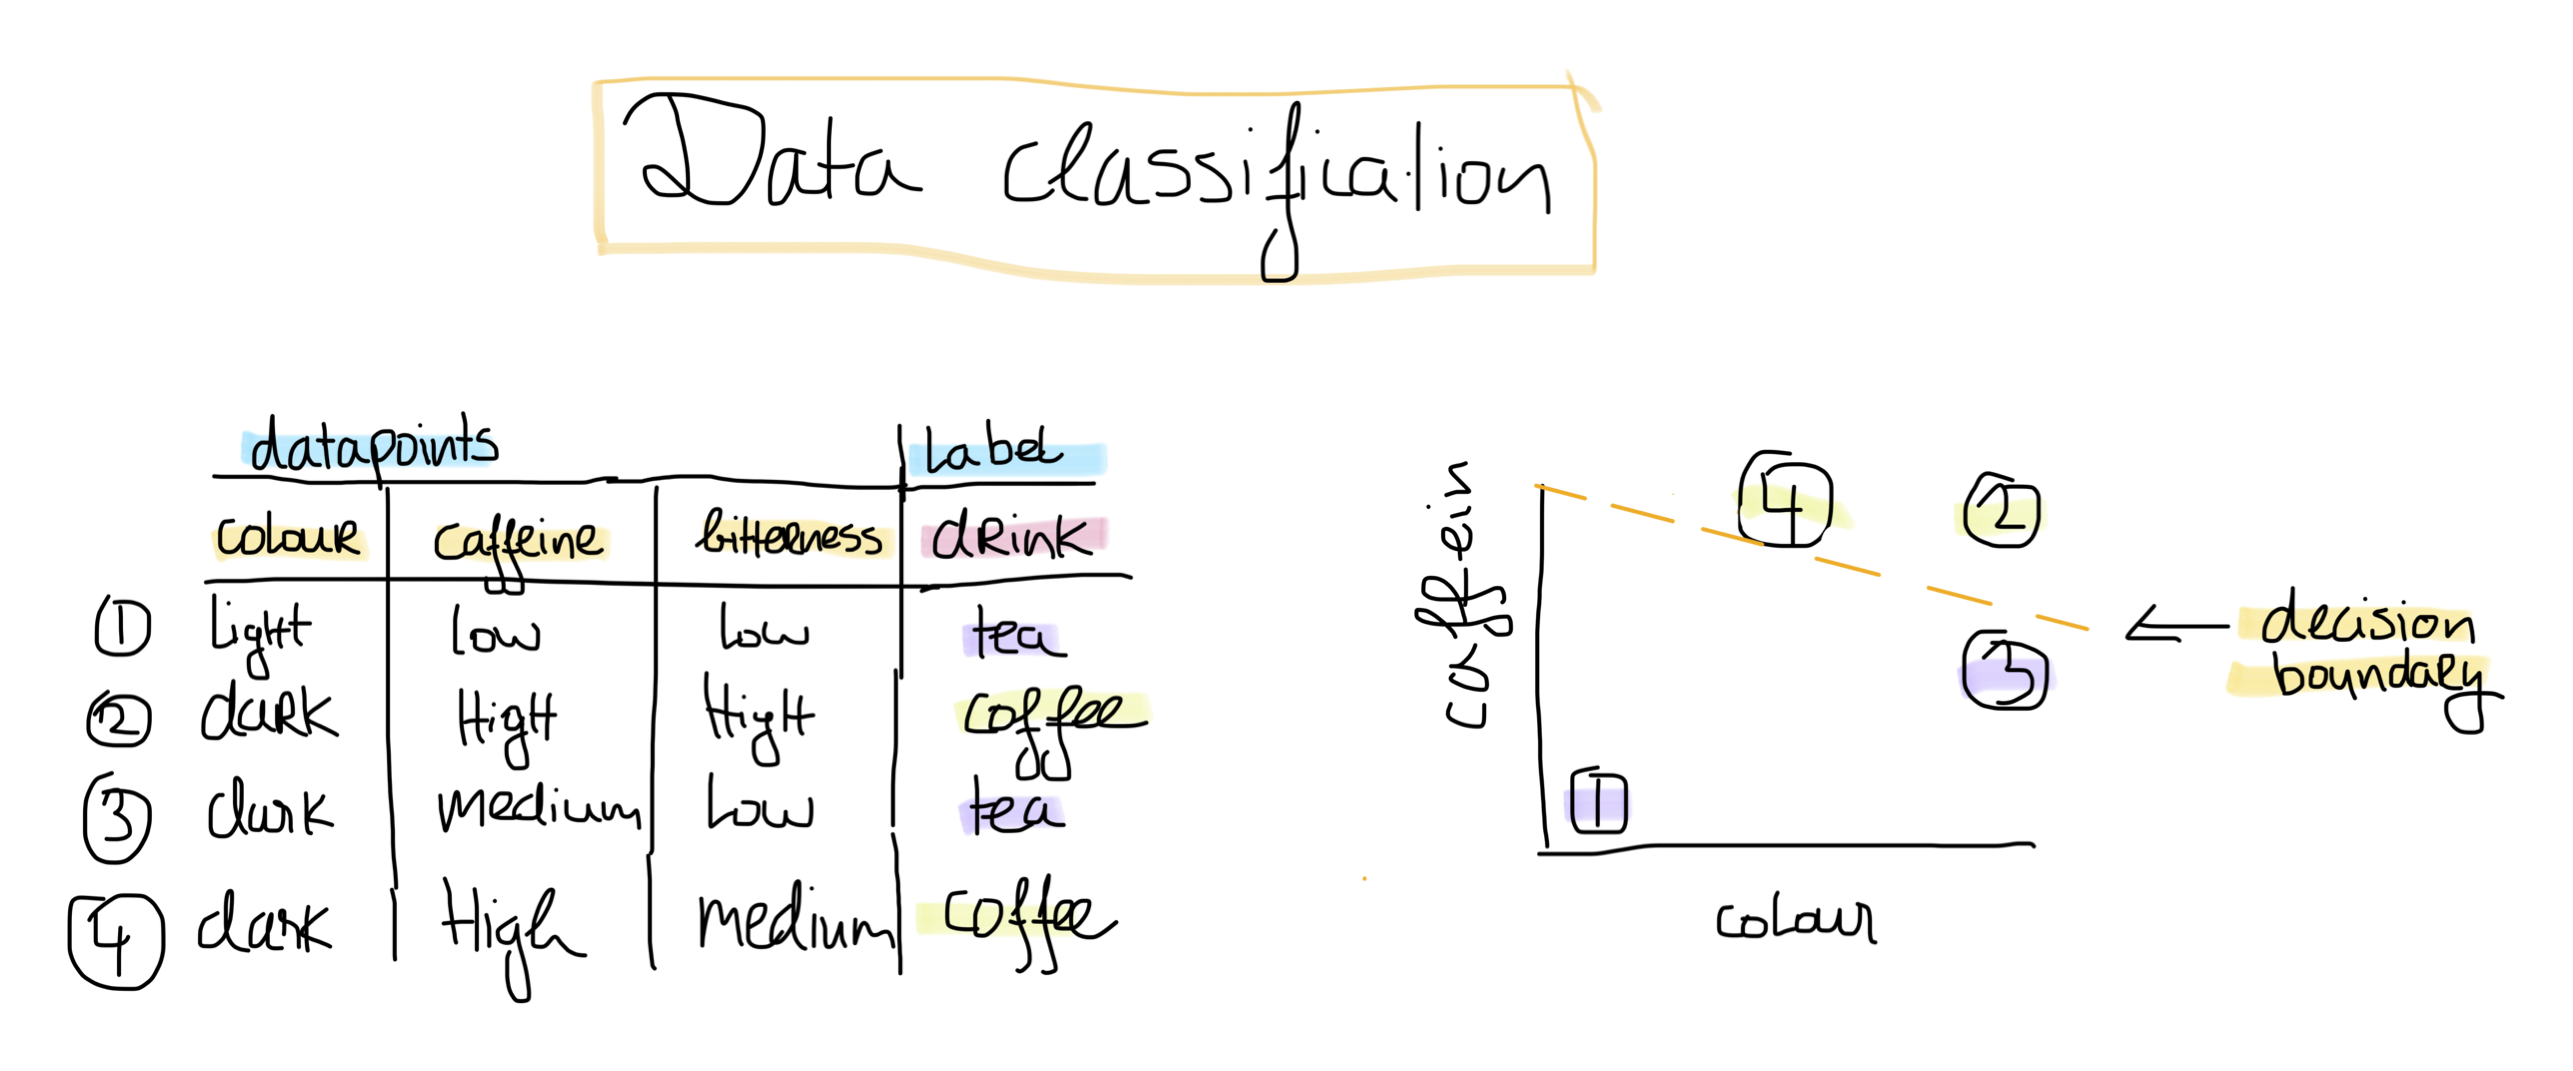 Data classification
datapoints Label
colour caffeine bitterness dRink
1 Light Low Low tea
2 dark High High coffee
3 dark Medium Low tea
4 dark High Medium coffee
caffein
4 2
3
1
decision
boundary
colour